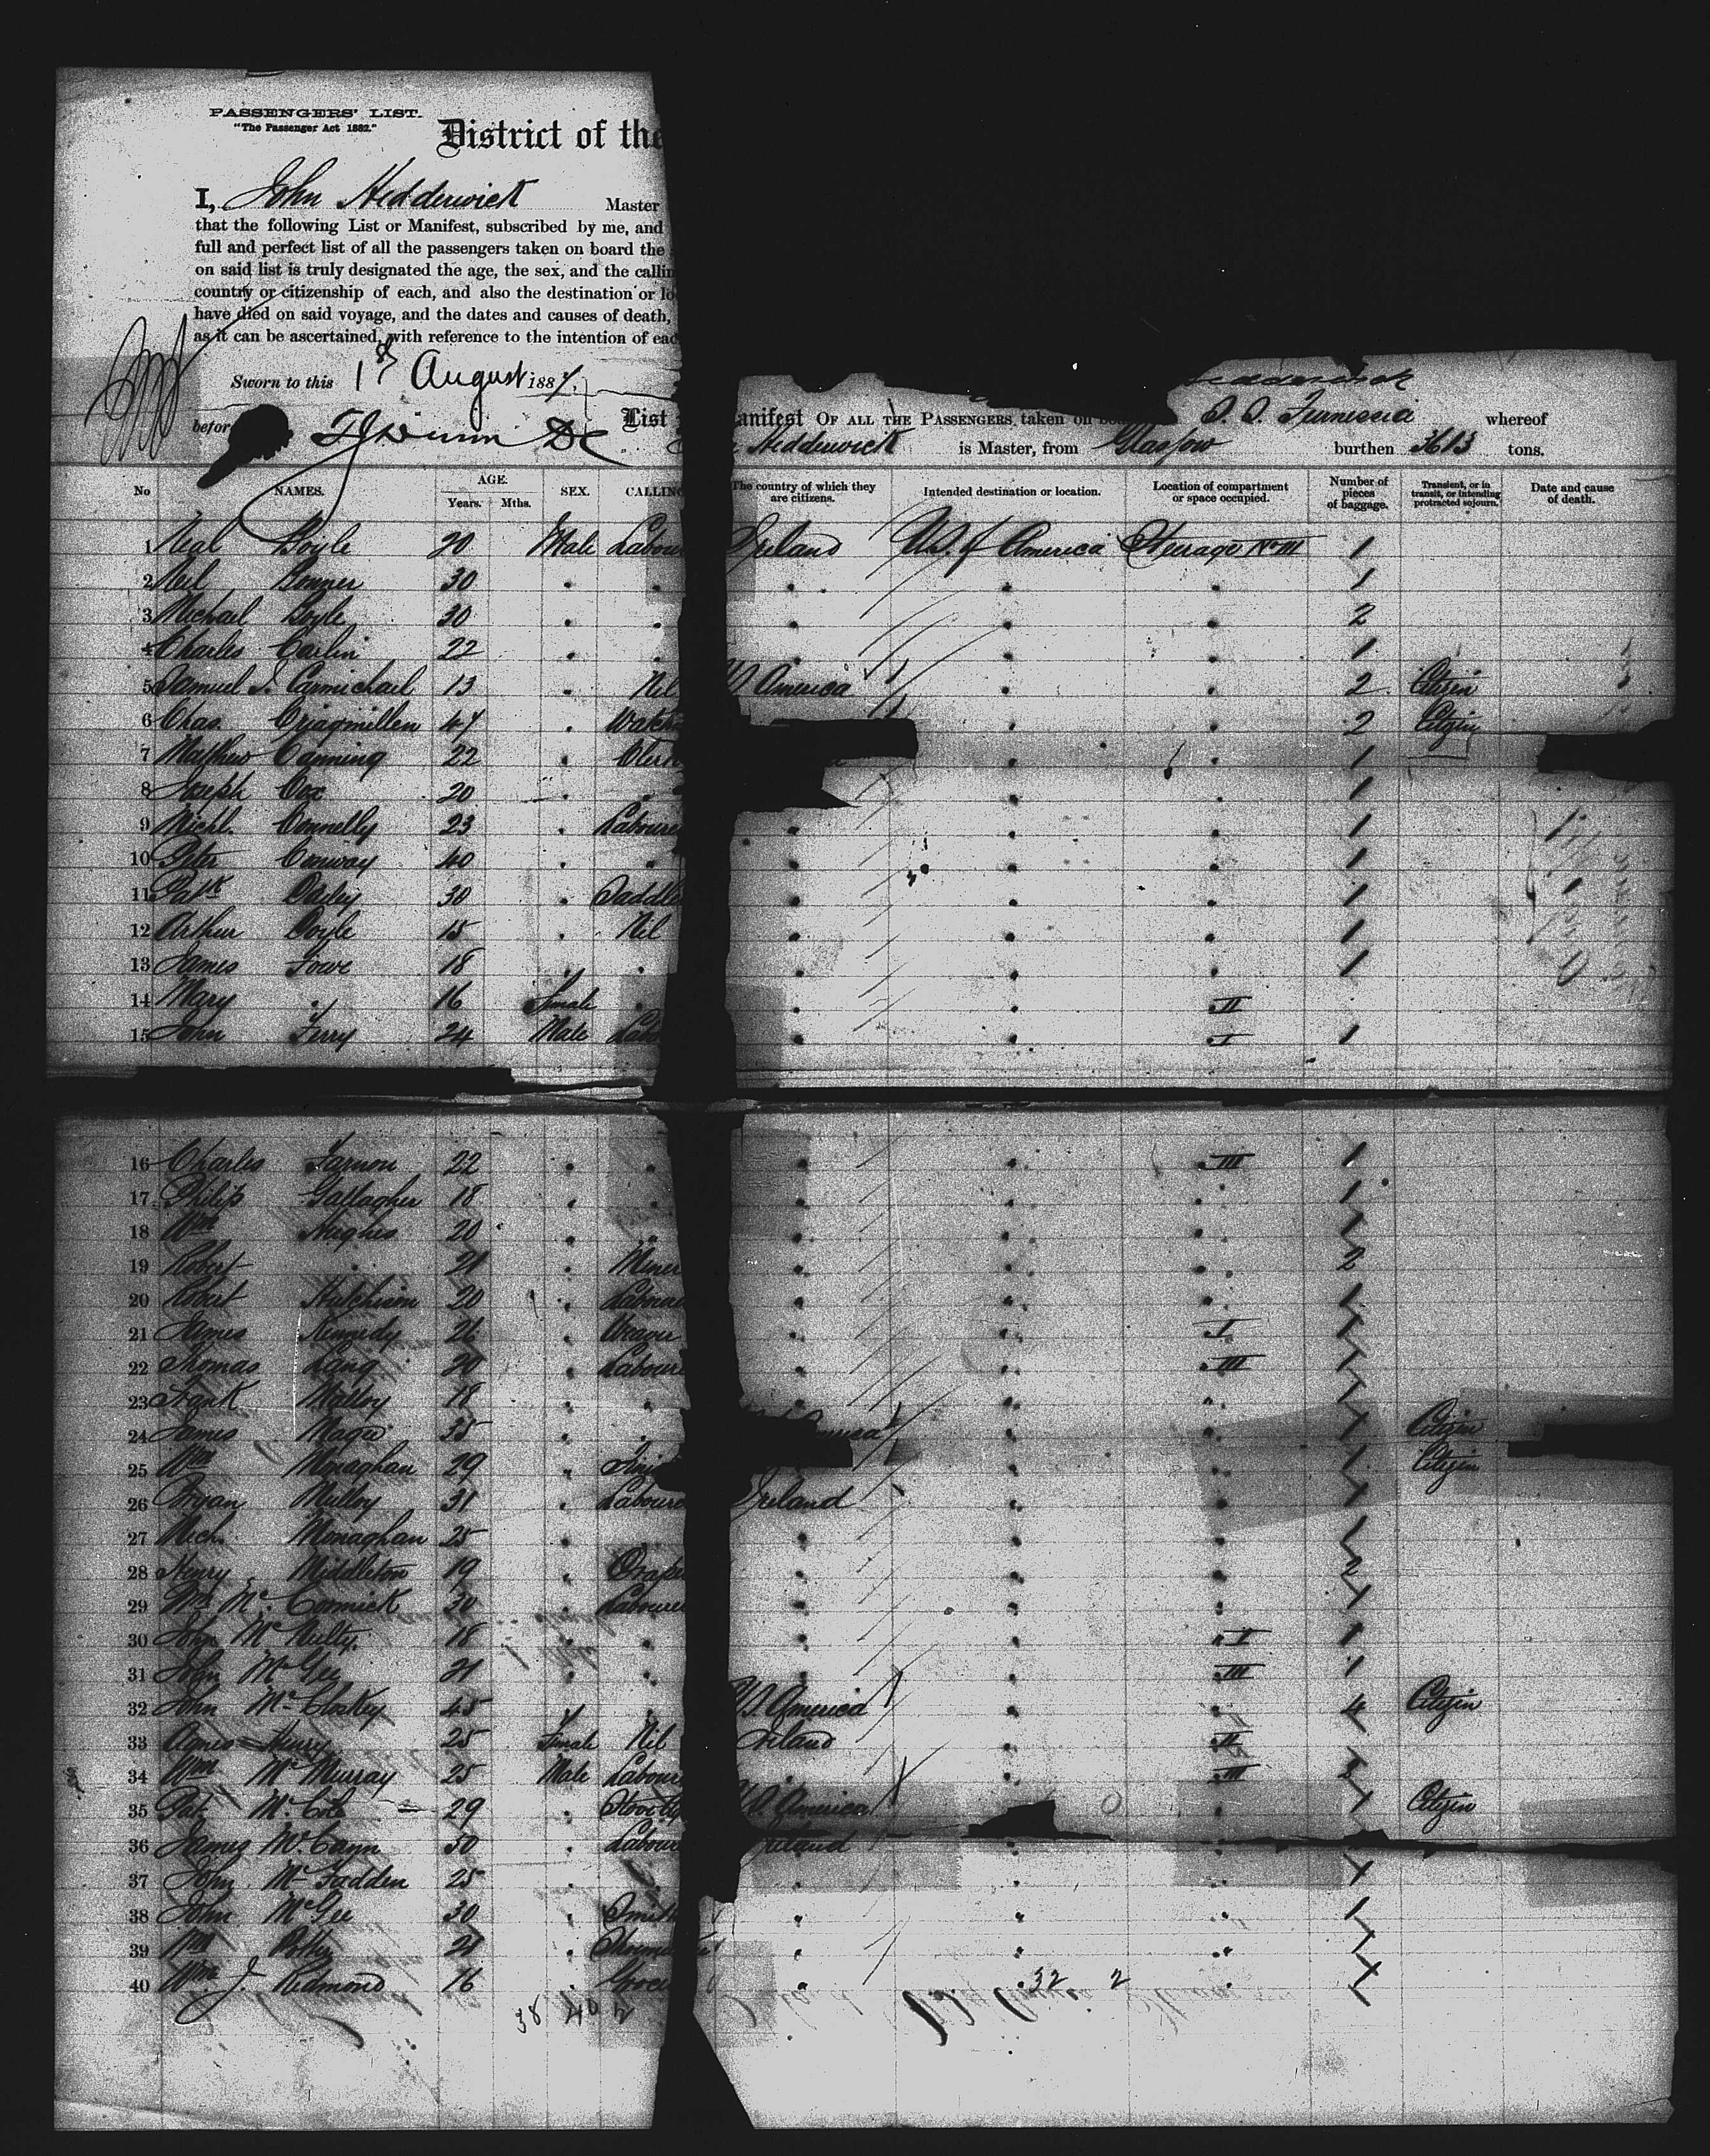 PASSENGERS' LIST.
"The Passenger Act 1882."
District of the
I, John Hedderwick Master
that the following List or Manifest, subscribed by me, and
full and perfect list of all the passengers taken on board the
on said list is truly designated the age, the sex, and the callin
country or citizenship of each, and also the destination or lo
have died on said voyage, and the dates and causes of death,
as it can be ascertained, with reference to the intention of eac
Sworn to this 1st August 1887.
befor
List anifest OF ALL THE PASSENGERS taken on S. S. Furnessia whereof
Hedderwick is Master, from Glasgow burthen 3613 tons.
No NAMES. AGE. Years. Mths. SEX. CALLING The country of which they are citizens. Intended destination or location. Location of compartment or space occupied. Number of pieces of baggage. Transient, or in transit, or intending protracted sojourn. Date and cause of death.
1 Neal Boyle 20 Male Labou Ireland U.S. of America Steerage No III 1
2 Neil 30 " " " " " 1
3 Michael Boyle 30 " " " " " 2
4 Charles Carlin 22 " " " " " 1
5 Samuel J. Carmichael 13 " Nil U S America " " 2 Citizen
6 Chas. 47 " " " 2 Citizen
7 Mathew Canning 22 " Clerk " " 1
8 Joseph Cox 20 " " " " 1
9 Michl. Connelly 23 " Laboure " " " 1
10 Peter Conway 40 " " " " " 1
11 Patk 30 " Saddle " " " 1
12 Arthur Doyle 15 " Nil " " " 1
13 James Fowe 18 " " " " " 1
14 Mary " 16 Female " " " " II
15 John Ferry 24 Male Lab " " " I 1
16 Charles Farnon 22 " " " " " III 1
17 Philip Gallagher 18 " " " " " 1
18 Wm Hughes 20 " " " " " 1
19 Robert " 21 " Miner " " " 2
20 Robert Hutchison 20 " Laboure " " " 1
21 James Kennedy 26 " " " " I 1
22 Thomas Lang 20 " Laboure " " " III 1
23 Frank Malloy 18 " " " " " 1
24 James Magee 35 " " America " " 1 Citizen
25 Wm Monaghan 29 " " " 1 Citizen
26 Bryan Mulloy 31 " Laboure Ireland " " 1
27 Mich. Monaghan 25 " " " " 1
28 Henry Middleton 19 " Drape " " " 2
29 Wm McCormick 30 " Laboure " " " 1
30 John McNulty 18 " " " " " I 1
31 John McGee 21 " " " " " III 1
32 John McCloskey 45 " " U S America " " 4 Citizen
33 Agnes Henry 25 Female Nil Ireland " " II
34 Wm McMurray 25 Male Labour " " " III 2
35 Pat. McCole 29 " U S America " " 1 Citizen
36 James McCann 50 " Laboure Ireland " "
37 John McFadden 25 " " " " " 1
38 John McGee 30 " Smith " " " 1
39 Wm " " " " 1
40 Wm. J. Redmond 16 " Groce " " " 1
32 2
38 40 2